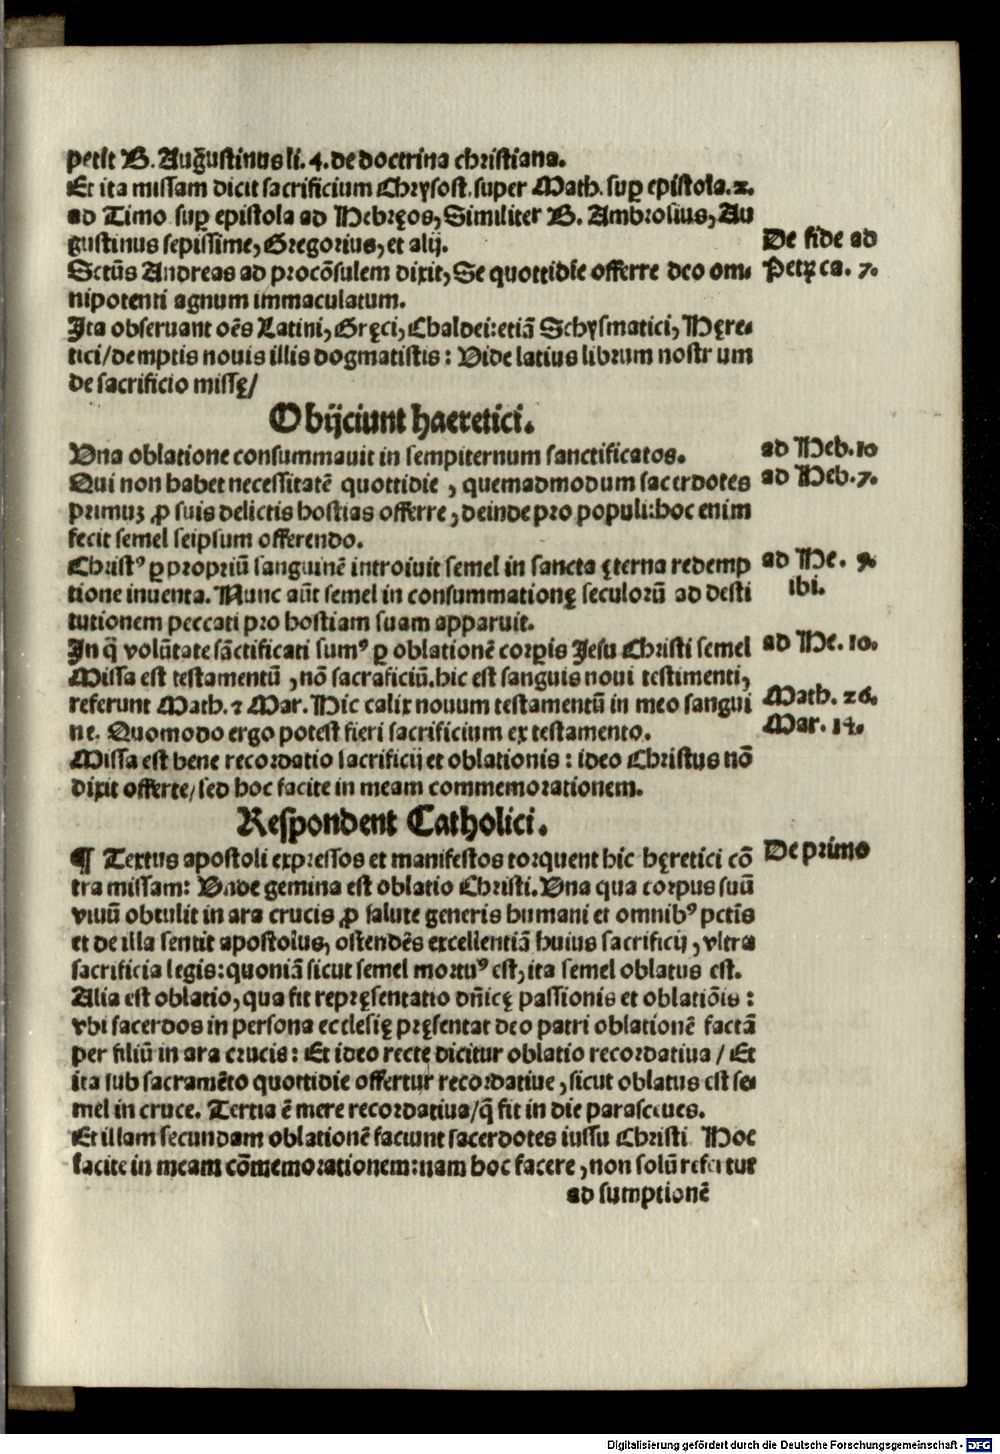 petit B. Augustinus li. 4. de doctrina christiana.
Et ita missam dicit sacrificium Chrysost. super Math. sup epistola. 2.
ad Timo sup epistola ad Hebręos, Similiter B. Ambrosius, Au
gustinus sepissime, Gregorius, et alij.
De fide ad
Sctūs Andreas ad procōsulem dixit, Se quottidie offerre deo om-
Petrę ca. 7.
nipotenti agnum immaculatum.
Ita obseruant oēs Latini, Gręci, Chaldei: etiā Schysmatici, Hęre-
tici / demptis nouis illis dogmatistis: Vide latius librum nostrum
de sacrificio missę /
Obijciunt haeretici.
Vna oblatione consummauit in sempiternum sanctificatos.
ad Heb. 10
Qui non habet necessitatē quottidie , quemadmodum sacerdotes
ad Heb. 7.
primuz ꝓ suis delictis hostias offerre , deinde pro populi: hoc enim
fecit semel seipsum offerendo.
Christꝰ ꝑ propriū sanguinē introiuit semel in sancta ęterna redemp
ad He. 9.
tione inuenta. Nunc aūt semel in consummationę seculorū ad desti
ibi.
tutionem peccati pro hostiam suam apparuit.
In q̄ volūtate sāctificati sumꝰ ꝑ oblationē corpis Jesu Christi semel
ad He. 10.
Missa est testamentū , nō sacraficiū. hic est sanguis noui testimenti,
referunt Math. ⁊ Mar. Hic calix nouum testamentū in meo sangui
Math. 26.
ne. Quomodo ergo potest fieri sacrificium ex testamento.
Mar. 14.
Missa est bene recordatio sacrificij et oblationis: ideo Christus nō
dixit offerte / sed hoc facite in meam commemorationem.
Respondent Catholici.
¶ Textus apostoli expressos et manifestos torquent hic hęretici cō
De primo
tra missam: Vnde gemina est oblatio Christi. Vna qua corpus suū
viuū obtulit in ara crucis ꝓ salute generis humani et omnibꝰ pctis
et de illa sentit apostolus, ostendēs excellentiā huius sacrificij , vltra
sacrificia legis: quoniā sicut semel mortuꝰ est, ita semel oblatus est.
Alia est oblatio, qua fit repręsentatio dn̄icę passionis et oblatiōis:
vbi sacerdos in persona ecclesię pręsentat deo patri oblationē factā
per filiū in ara crucis: Et ideo rectę dicitur oblatio recordatiua / Et
ita sub sacramēto quottidie offertur recordatiue , sicut oblatus est se-
mel in cruce. Tertia ē mere recordatiua / q̄ fit in die parasceues.
Et illam secundam oblationē faciunt sacerdotes iussu Christi Hoc
facite in meam cōmemorationem: nam hoc facere , non solū refertur
ad sumptionē
Digitalisierung gefördert durch die Deutsche Forschungsgemeinschaft - DFG